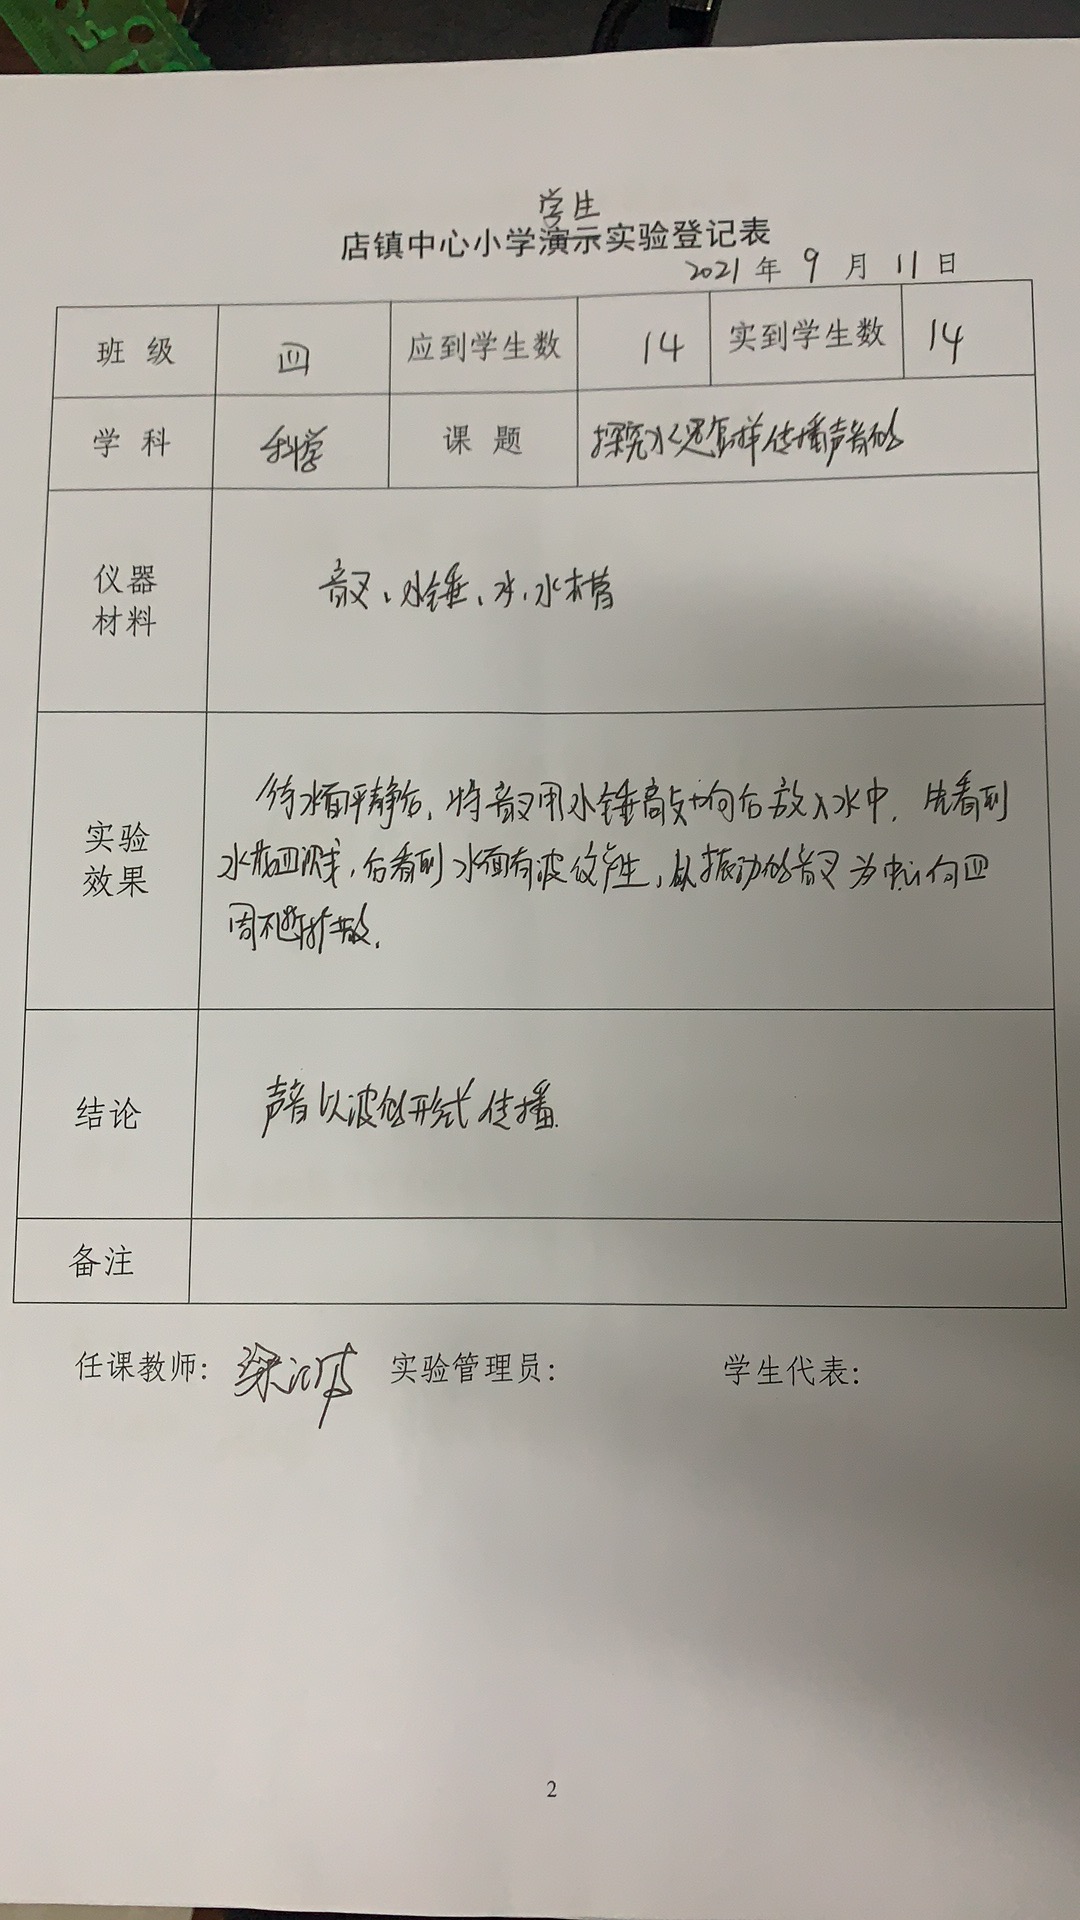 学生
店镇中心小学演示实验登记表
2021 年 9 月 11 日
班 级 四 应到学生数 14 实到学生数 14
学 科 科学 课 题 探究水是怎样传播声音的
仪器
材料
音叉、小锤、水、水槽
待水面平静后,将音叉用小锤敲响后放入水中,先看到
实验
效果
水花四溅,后看到水面有波纹产生,以振动的音叉为中心向四
周不断扩散。
结论 声音以波的形式传播.
备注
任课教师: 实验管理员: 学生代表:
2